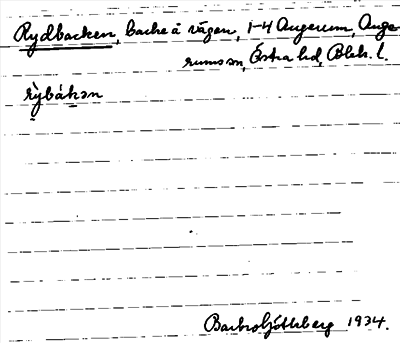 Rydbacken, backe å vägen, 1-4 Augerum, Auge-
rums sn, Östra hd, Blek. l.
rỳbákən
Barbro Götlsberg 1934.